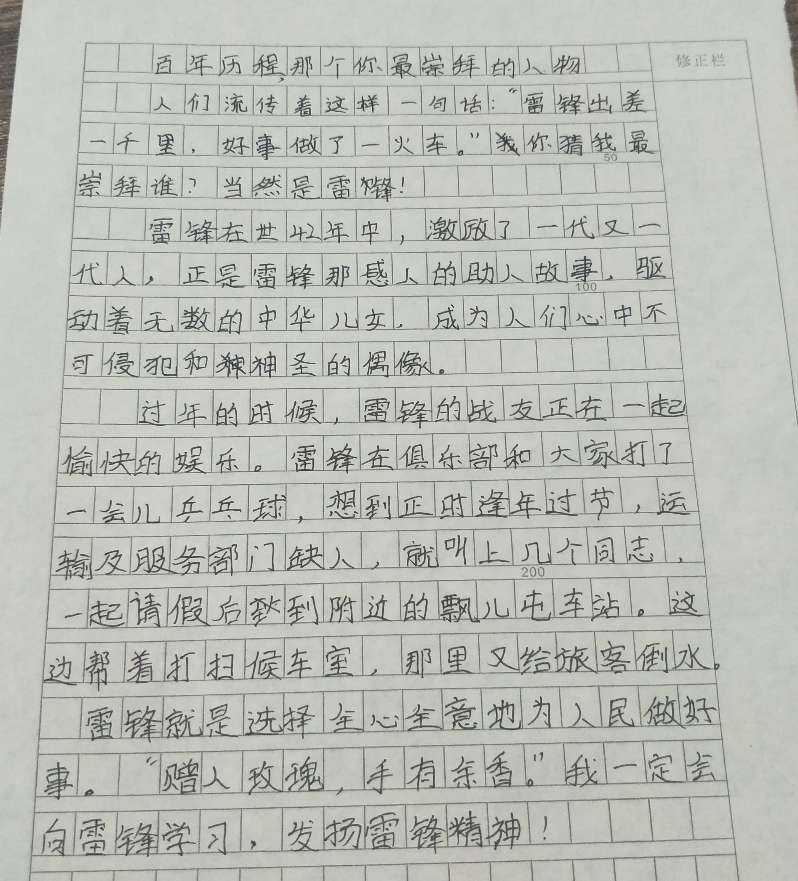 百年历程,那个你最崇拜的人物
修正栏
人们流传着这样一句话:“雷锋出差
一千里,好事做了一火车。”你猜我最
50
崇拜谁?当然是雷锋!
雷锋在世42年中,激励了一代又一
代人,正是雷锋那感人的助人故事,驱
100
动着无数的中华儿女,成为人们心中不
可侵犯和神圣的偶像。
过年的时候,雷锋的战友正在一起
愉快的娱乐。雷锋在俱乐部和大家打了
一会儿乒乓球,想到正时逢年过节,运
输及服务部门缺人,就叫上几个同志,
200
一起请假后到附近的瓢儿屯车站。这
边帮着打扫候车室,那里又给旅客倒水。
雷锋就是选择全心全意地为人民做好
事。“赠人玫瑰,手有余香。”我一定会
向雷锋学习,发扬雷锋精神!